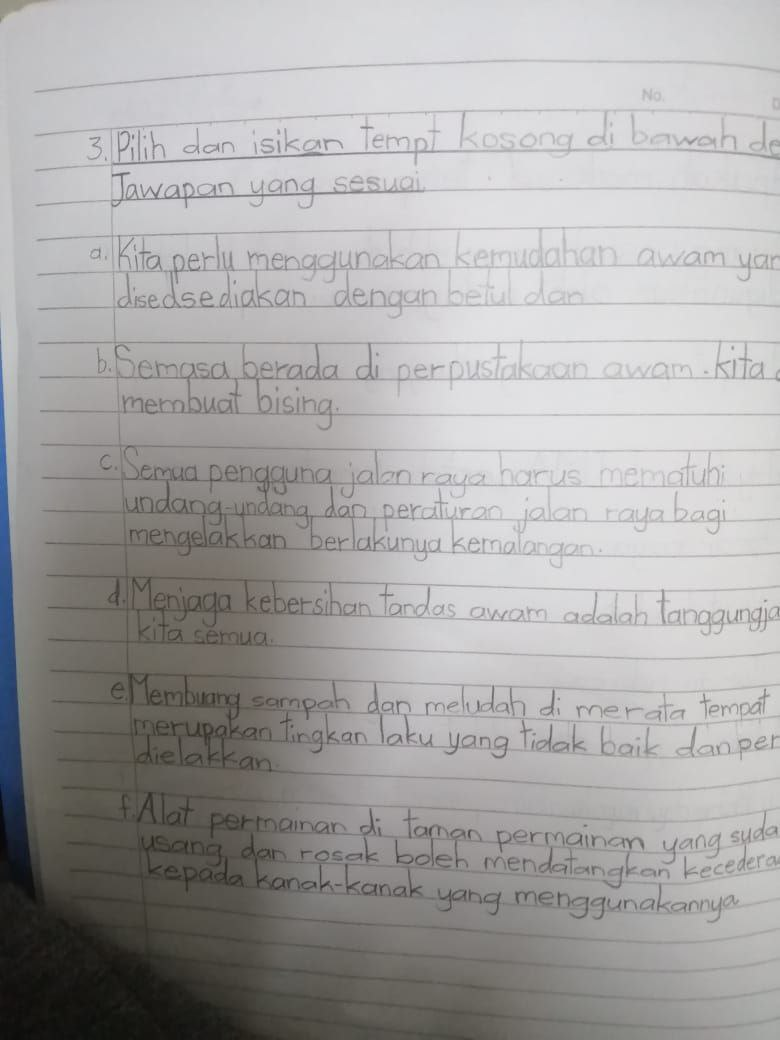 No.
3. Pilih dan isikan tempt kosong di bawah de
Jawapan yang sesuai
a. Kita perlu menggunakan kemudahan awam yan
disedsediakan dengan betul dan
b. Semasa berada di perpustakaan awam. kita
membuat bising.
c. Semua pengguna jalan raya harus mematuhi
undang-undang dan peraturan jalan raya bagi
mengelakkan berlakunya kemalangan.
d. Menjaga kebersihan tandas awam adalah tanggungja
kita semua.
e. Membuang sampah dan meludah di merata tempat
merupakan tingkan laku yang tidak baik dan per
dielakkan
f. Alat permainan di taman permainan yang suda
usang dan rosak boleh mendatangkan kecedera
kepada kanak-kanak yang menggunakannya